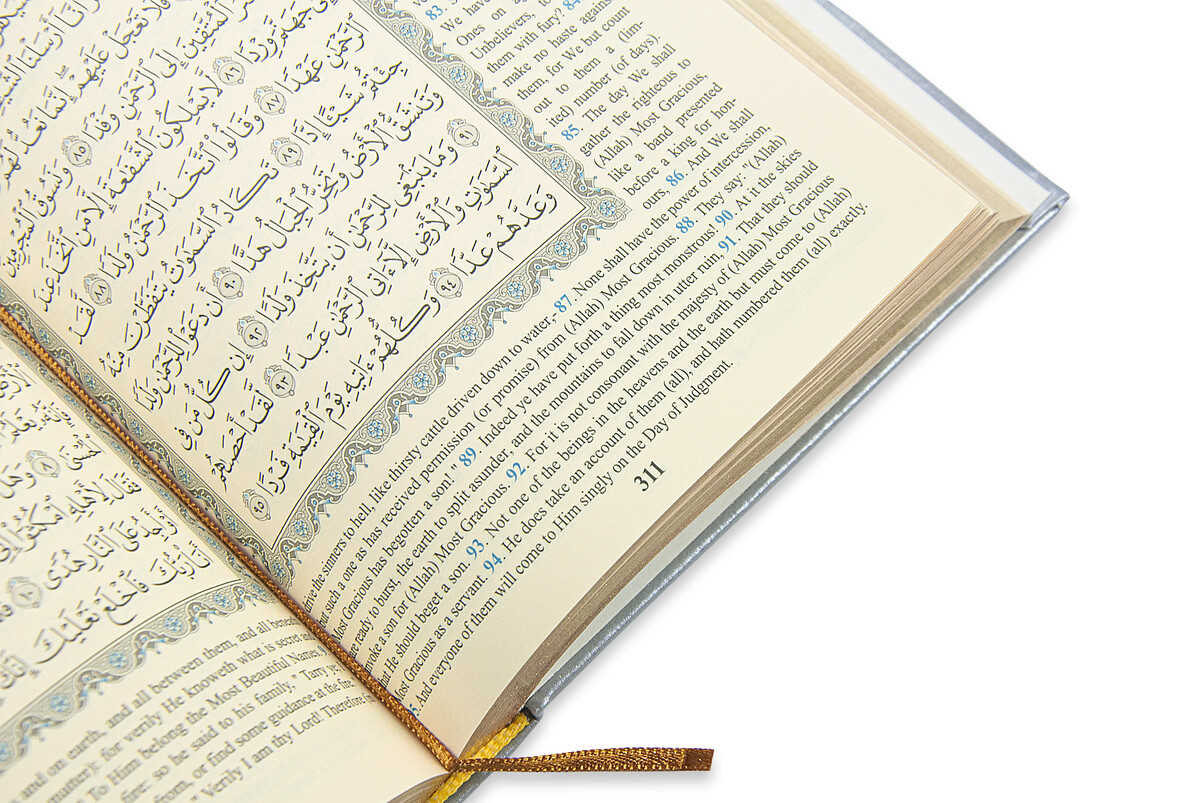 فَلَا تَعْجَلْ عَلَيْهِمْ ۖ إِنَّمَا نَعُدُّ لَهُمْ
ٱلْمُتَّقِينَ إِلَى ٱلرَّحْمَٰنِ وَفْدًا ٨٥ وَنَسُوقُ ٱلْمُجْرِمِينَ
إِلَىٰ جَهَنَّمَ وِرْدًا ٨٦ لَّا يَمْلِكُونَ ٱلشَّفَٰعَةَ إِلَّا مَنِ ٱتَّخَذَ عِندَ
ٱلرَّحْمَٰنِ عَهْدًا ٨٧ وَقَالُوا۟ ٱتَّخَذَ ٱلرَّحْمَٰنُ وَلَدًا ٨٨ لَّقَدْ
جِئْتُمْ شَيْـًٔا إِدًّا ٨٩ تَكَادُ ٱلسَّمَٰوَٰتُ يَتَفَطَّرْنَ مِنْهُ
وَتَنشَقُّ ٱلْأَرْضُ وَتَخِرُّ ٱلْجِبَالُ هَدًّا ٩٠ أَن دَعَوْا۟ لِلرَّحْمَٰنِ وَلَدًا
٩١ وَمَا يَنۢبَغِى لِلرَّحْمَٰنِ أَن يَتَّخِذَ وَلَدًا ٩٢ إِن كُلُّ مَن فِى
ٱلسَّمَٰوَٰتِ وَٱلْأَرْضِ إِلَّآ ءَاتِى ٱلرَّحْمَٰنِ عَبْدًا ٩٣ لَّقَدْ أَحْصَىٰهُمْ
وَعَدَّهُمْ عَدًّا ٩٤ وَكُلُّهُمْ ءَاتِيهِ يَوْمَ ٱلْقِيَٰمَةِ فَرْدًا ٩٥
83.
We have
Ones on
Unbelievers, to
them with fury? 84.
make no haste against
them, for We but count
out to them a (lim-
ited) number (of days).
85. The day We shall
gather the righteous to
(Allah) Most Gracious,
like a band presented
before a king for hon-
ours, 86. And We shall
drive the sinners to hell, like thirsty cattle driven down to water,- 87. None shall have the power of intercession,
but such a one as has received permission (or promise) from (Allah) Most Gracious. 88. They say: "(Allah)
Most Gracious has begotten a son!" 89. Indeed ye have put forth a thing most monstrous! 90. At it the skies
are ready to burst, the earth to split asunder, and the mountains to fall down in utter ruin, 91. That they should
invoke a son for (Allah) Most Gracious. 92. For it is not consonant with the majesty of (Allah) Most Gracious
that He should beget a son. 93. Not one of the beings in the heavens and the earth but must come to (Allah)
Most Gracious as a servant. 94. He does take an account of them (all), and hath numbered them (all) exactly.
95. And everyone of them will come to Him singly on the Day of Judgment.
311
فَقَالَ لِأَهْلِهِ ٱمْكُثُوٓا۟ إِنِّىٓ
عَلَى ٱلنَّارِ هُدًى ١٠
أَنَا۠ رَبُّكَ فَٱخْلَعْ نَعْلَيْكَ ۖ إِنَّكَ
and on earth, and all between them, and all beneath
matter): for verily He knoweth what is secret and
To Him belong the Most Beautiful Names.
fire: so he said to his family, "Tarry ye;
from, or find some guidance at the fire."
"Verily I am thy Lord! Therefore